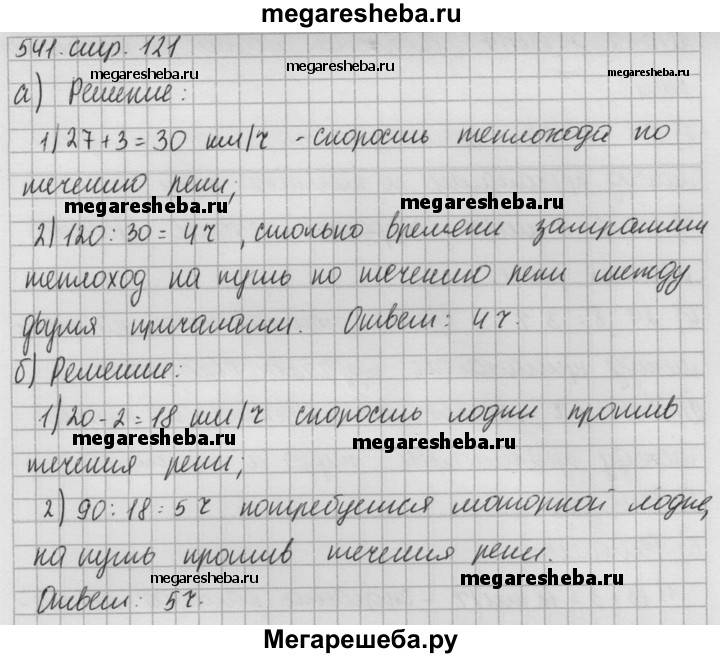 megaresheba.ru
541. стр. 121
megaresheba.ru megaresheba.ru
а) Решение:
1) 27 + 3 = 30 км/ч - скорость теплохода по
течению реки;
megaresheba.ru megaresheba.ru
2) 120 : 30 = 4 ч, столько времени затратит
теплоход на путь по течению реки между
двумя причалами. Ответ: 4 ч.
б) Решение:
1) 20 - 2 = 18 км/ч скорость лодки против
megaresheba.ru megaresheba.ru
течения реки;
2) 90 : 18 = 5 ч потребуется моторной лодке,
на путь против течения реки.
megaresheba.ru megaresheba.ru
Ответ: 5 ч.
Мегарешеба.ру